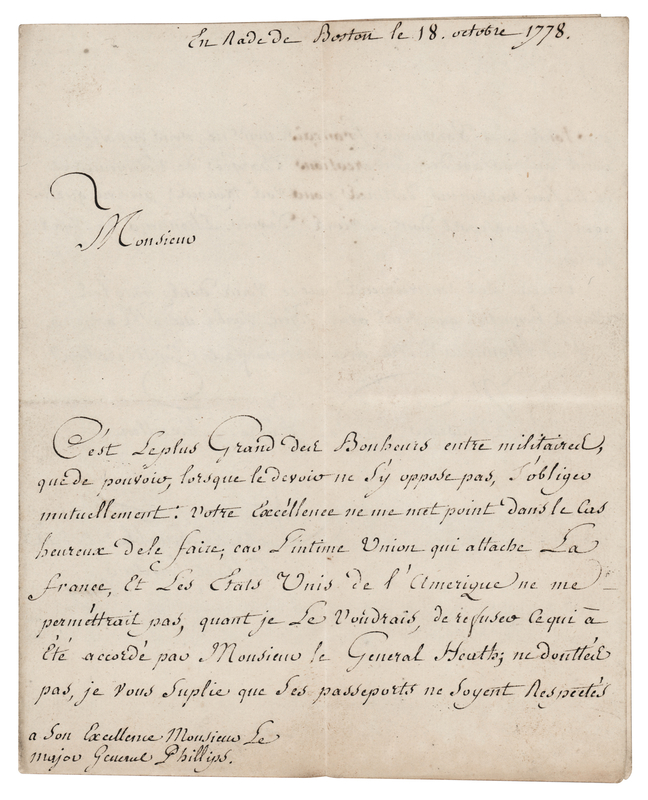 En Rade de Boston le 18. octobre 1778.
Monsieur
C'est Le plus Grand des Bonheurs entre militaires,
que de pouvoir, lorsque le devoir ne S'y oppose pas, S'obliger
mutuellement: Votre Excéllence ne me met point dans le Cas
heureux de le faire, car L'intime Union qui attache La
france, Et Les Etats Unis de l'Amerique ne me
perméttrait pas, quant je Le Voudrais, de refuser Ce qui à
Eté accordé par Monsieur le General Heath; ne douttés
pas, je Vous Suplie que Ses passeports ne Soyent Respectés
a Son Excellence Monsieur Le
major General Phillips.